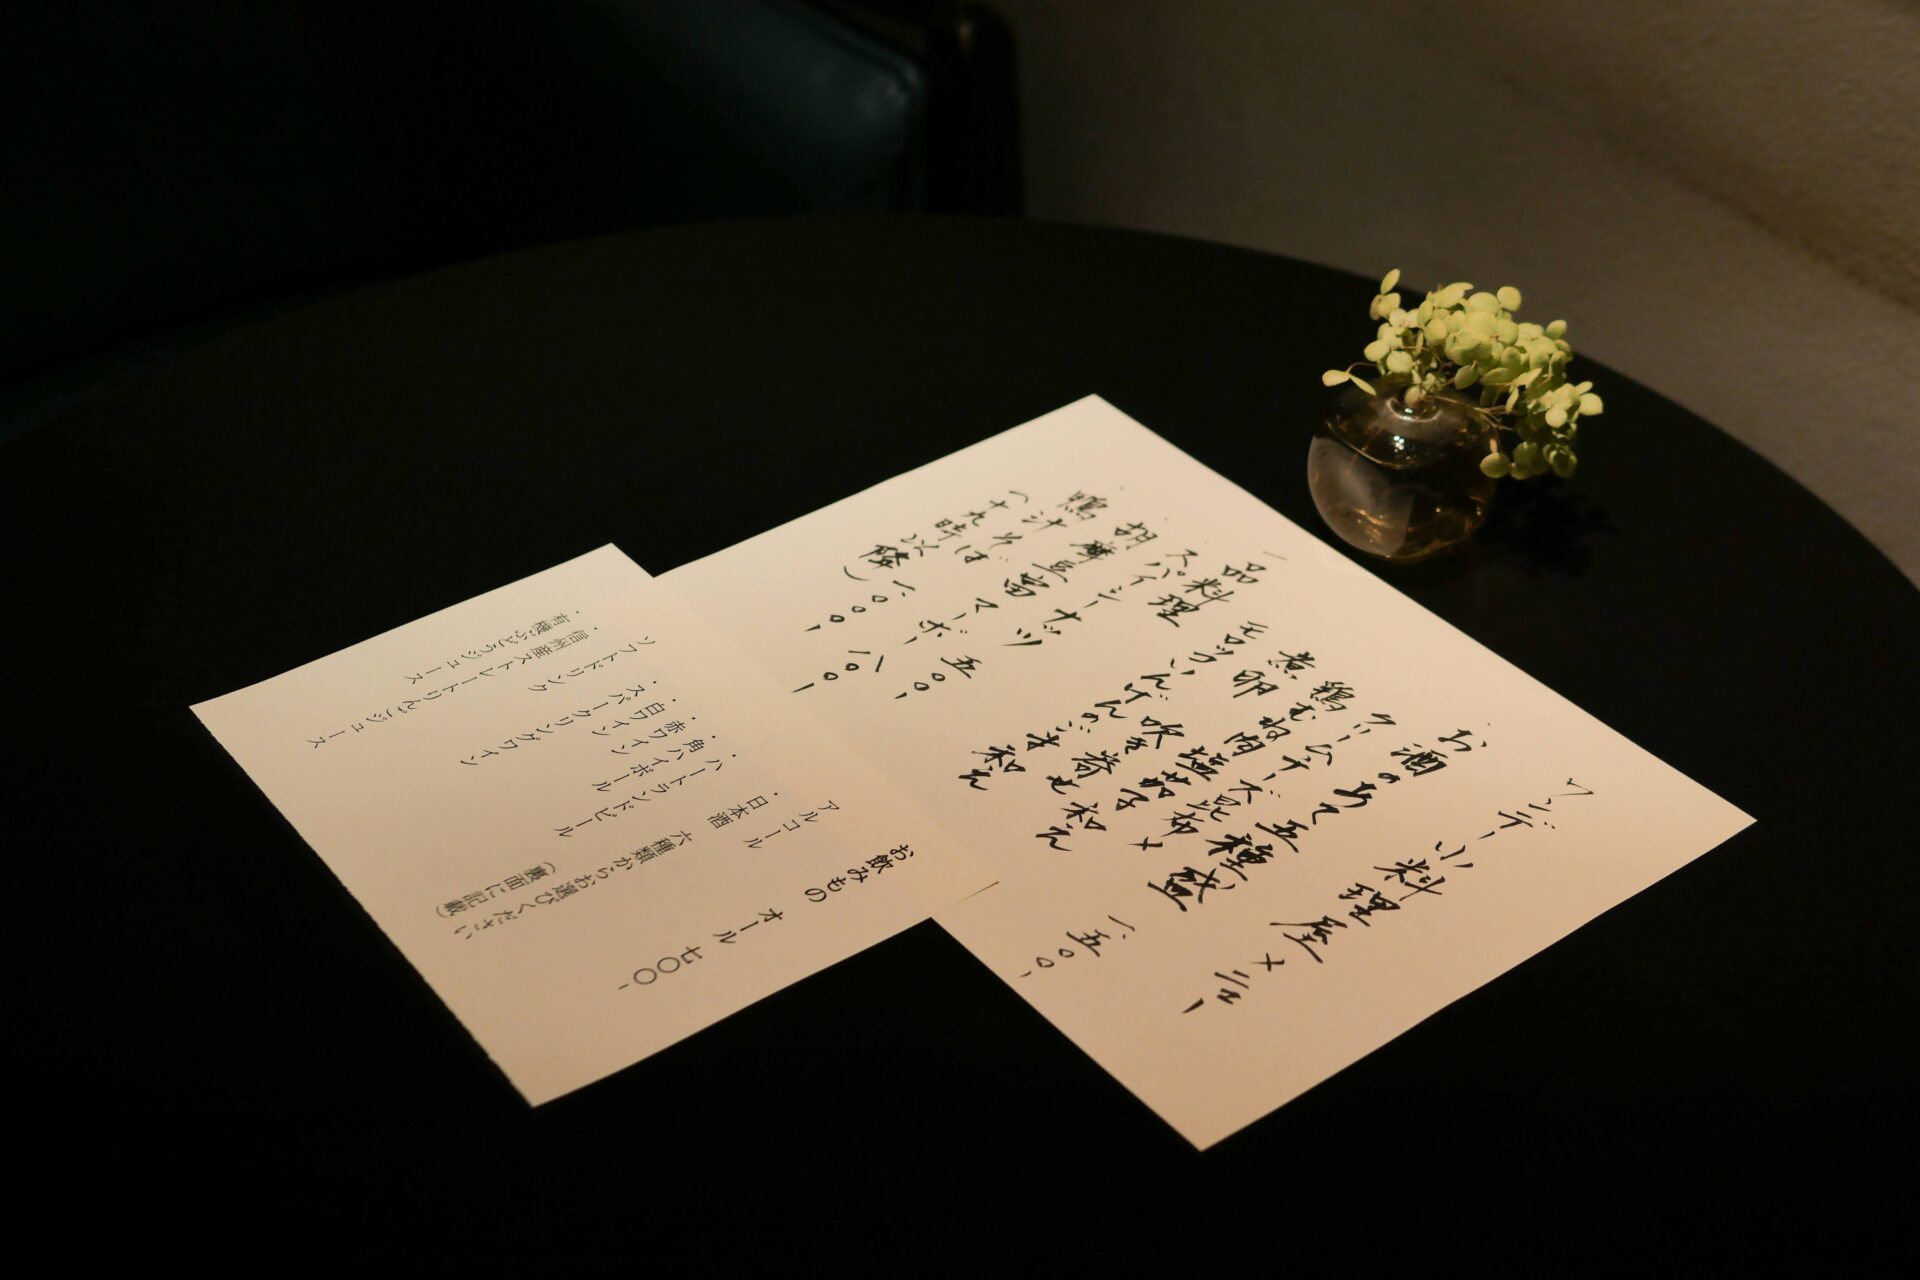 ワンデー小料理屋メニュー
お酒のあて五種盛 一、五〇〇、
クリームチーズ昆布〆
鶏むね肉塩茄子和え
煮卵 吹き寄せ
モロッコいんげんの 和え
一品料理
スパイシーナッツ 五〇〇、
胡麻豆富マーボー 八〇〇、
鴨汁そば 一、〇〇〇、
(十九時以降)
お飲みもの オール 七〇〇-
アルコール
・日本酒 六種類からお選びください
(裏面に記載)
・ハートランドビール
・角ハイボール
・赤ワイン
・白ワイン
・スパークリングワイン
ソフトドリンク
・信州産ストレートりんごジュース
・有機ぶどうジュース